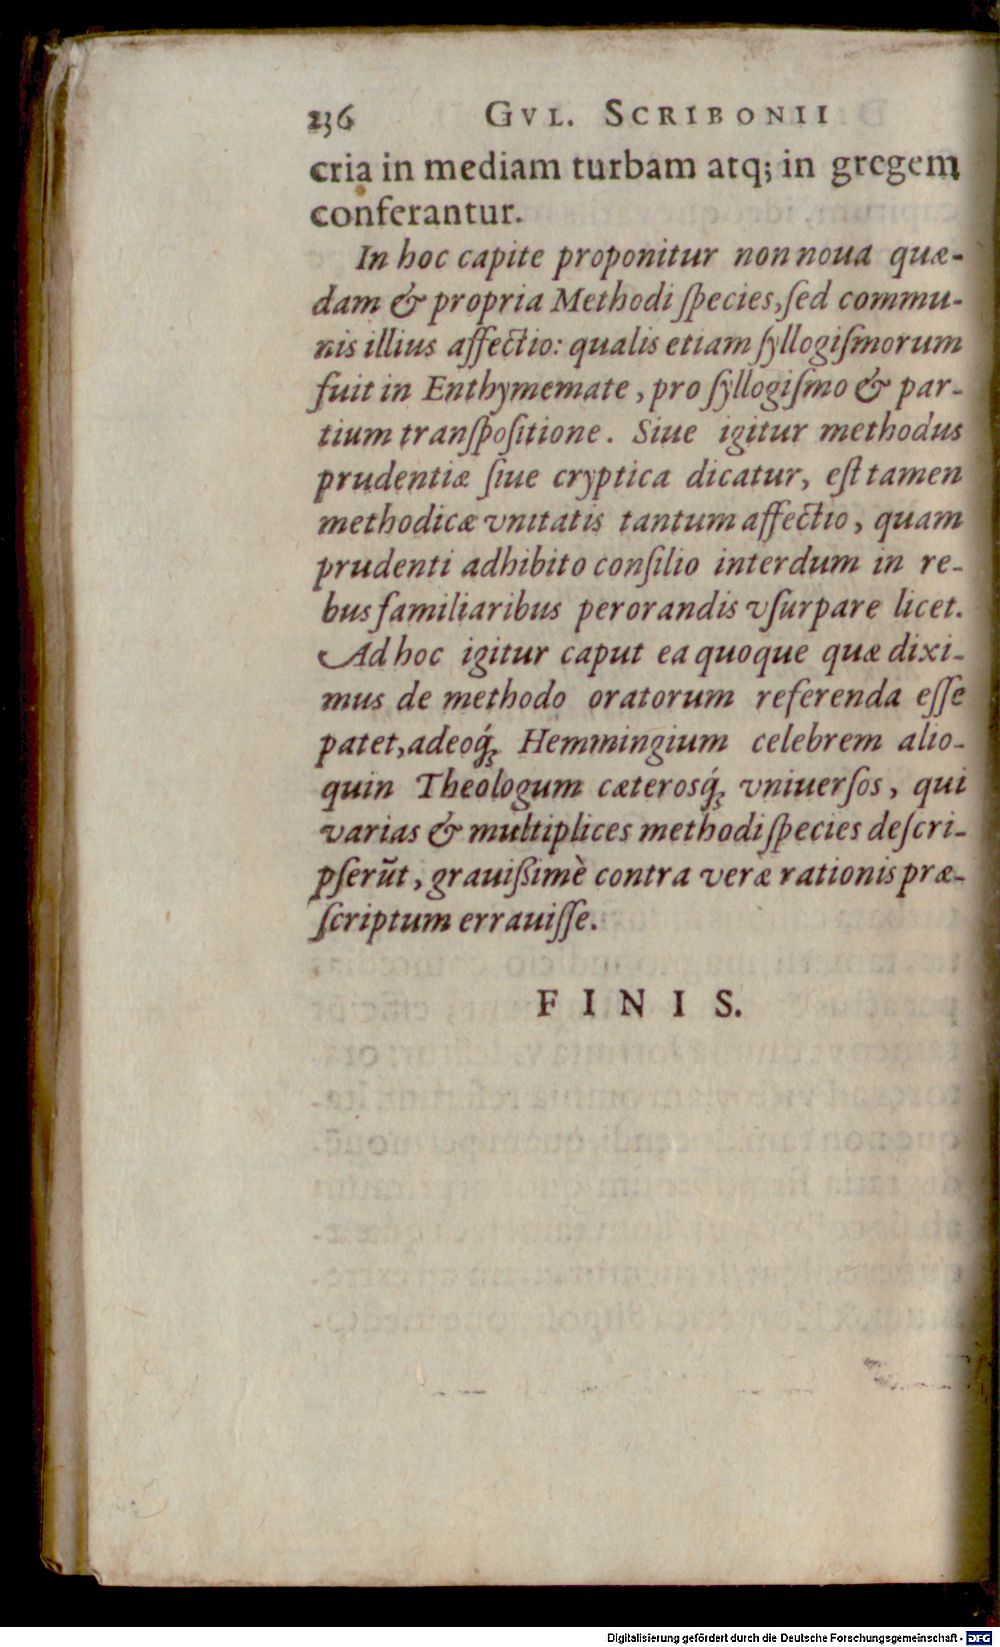 236 GVL. SCRIBONII
cria in mediam turbam atq; in gregem
conferantur.
In hoc capite proponitur non noua quæ-
dam & propria Methodi ſpecies, ſed commu-
nis illius affectio: qualis etiam ſyllogiſmorum
fuit in Enthymemate, pro ſyllogiſmo & par-
tium tranſpoſitione. Siue igitur methodus
prudentiæ ſiue cryptica dicatur, eſt tamen
methodicæ vnitatis tantum affectio, quam
prudenti adhibito conſilio interdum in re-
bus familiaribus perorandis vſurpare licet.
Ad hoc igitur caput ea quoque quæ dixi-
mus de methodo oratorum referenda eſſe
patet, adeoq́; Hemmingium celebrem alio-
quin Theologum cæterosq́; vniuerſos, qui
varias & multiplices methodi ſpecies deſcri-
pſerūt, grauiſsimè contra veræ rationis præ-
ſcriptum errauiſſe.
FINIS.
Digitalisierung gefördert durch die Deutsche Forschungsgemeinschaft - DFG